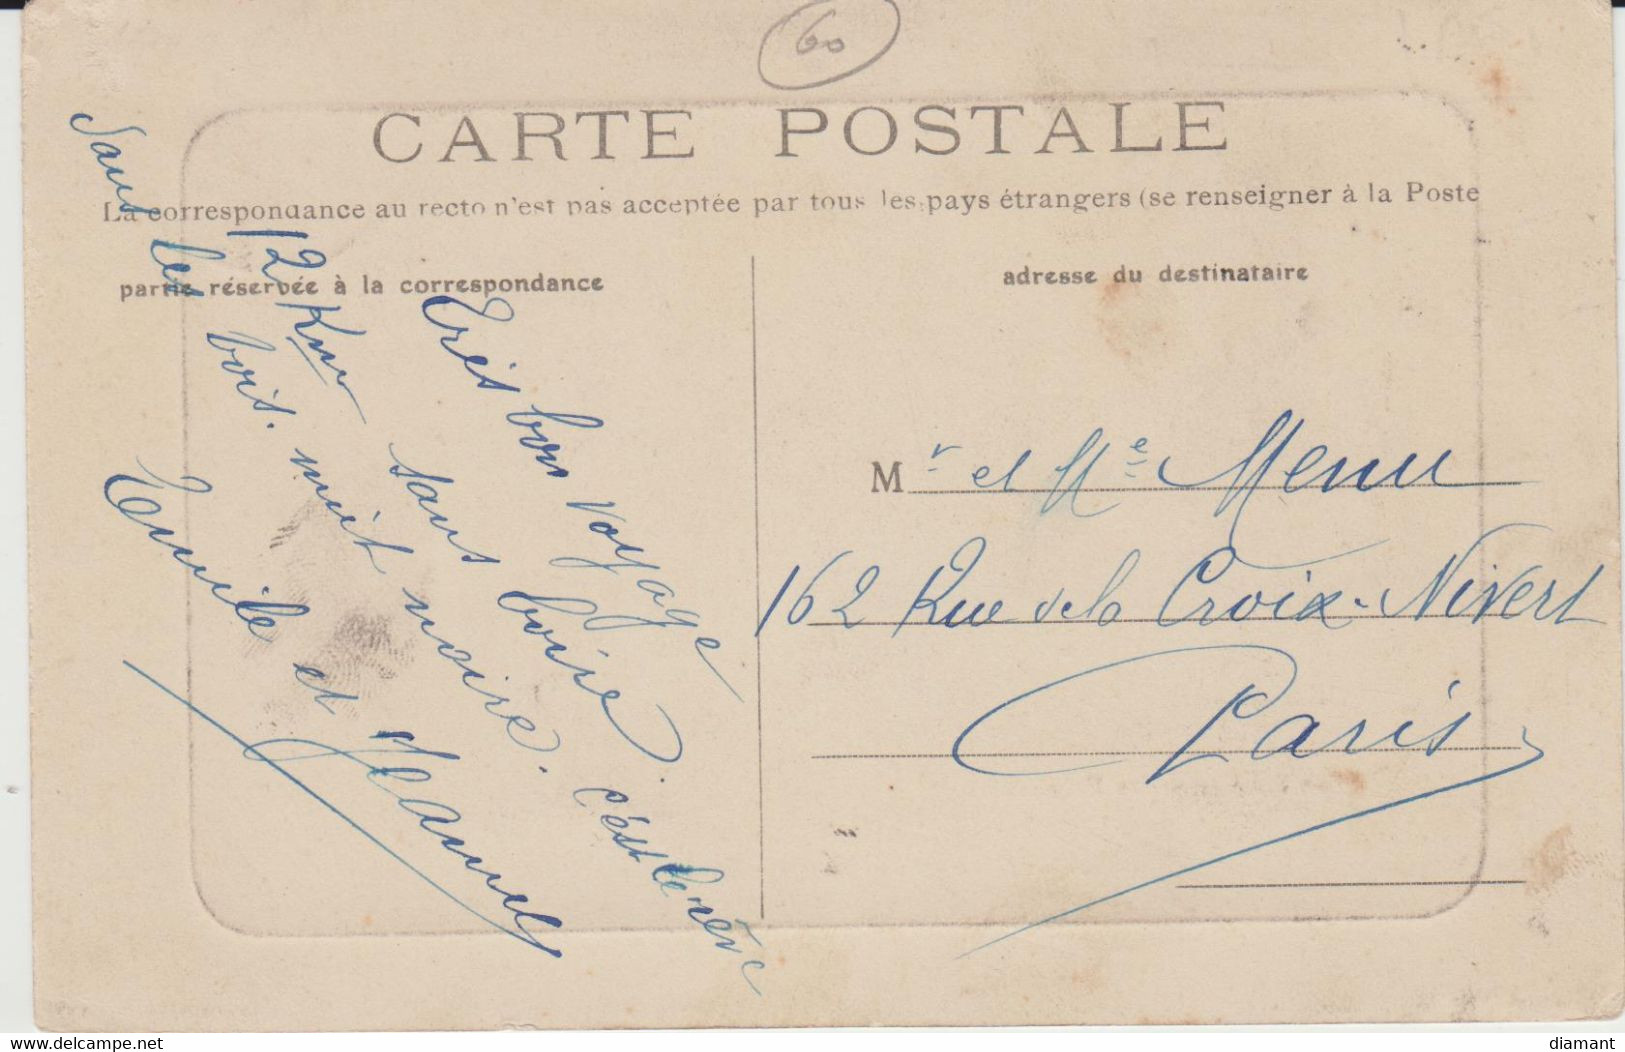 60
CARTE POSTALE
La correspondance au recto n'est pas acceptée par tous les pays étrangers (se renseigner à la Poste
partie réservée à la correspondance
adresse du destinataire
Très bon voyage
12 Km sans boire.
Sans les bois. nuit noire. c'est le rêve
Emile et Jeanne
Mr et Me Menu
162 Rue de la Croix-Nivert
Paris
www.delcampe.net
diamant